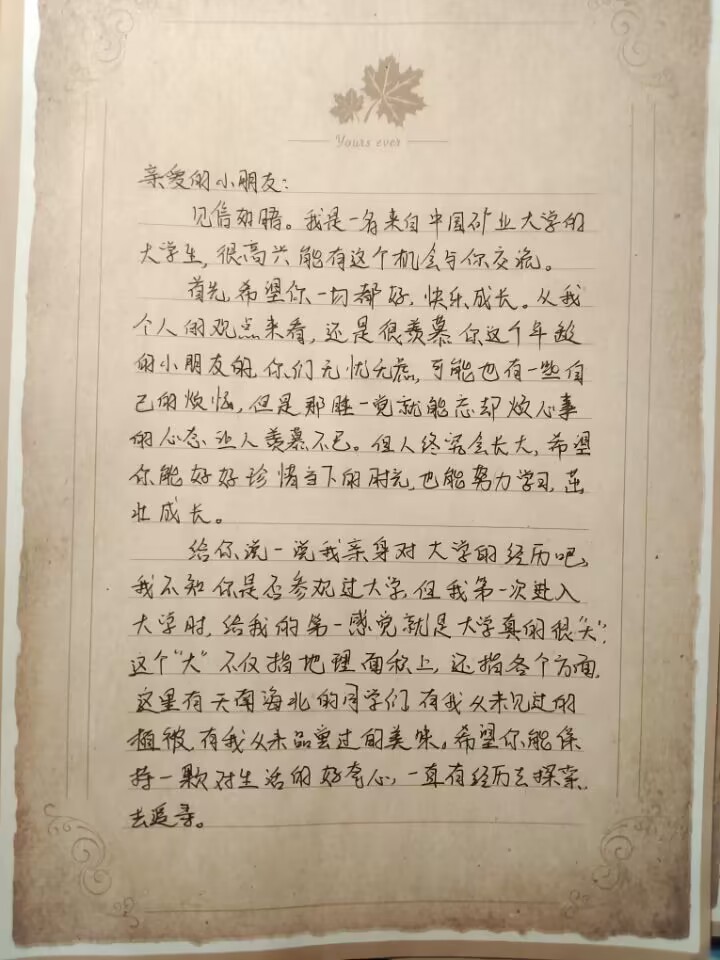 Yours ever
亲爱的小朋友：
见信如晤。我是一名来自中国矿业大学的
大学生，很高兴能有这个机会与你交流。
首先，希望你一切都好，快乐成长。从我
个人的观点来看，还是很羡慕你这个年龄
的小朋友的，你们无忧无虑，可能也有一些自
己的烦恼，但是那睡一觉就能忘却烦心事
的心态让人羡慕不已。但人终究会长大，希望
你能好好珍惜当下的时光，也能努力学习，茁
壮成长。
给你说一说我亲身对大学的经历吧，
我不知你是否参观过大学，但我第一次进入
大学时，给我的第一感觉就是大学真的很“大”，
这个“大”不仅指地理面积上，还指各个方面，
这里有天南海北的同学们，有我从未见过的
植被，有我从未品尝过的美味。希望你能保
持一颗对生活的好奇心，一直有经历去探索，
去追寻。